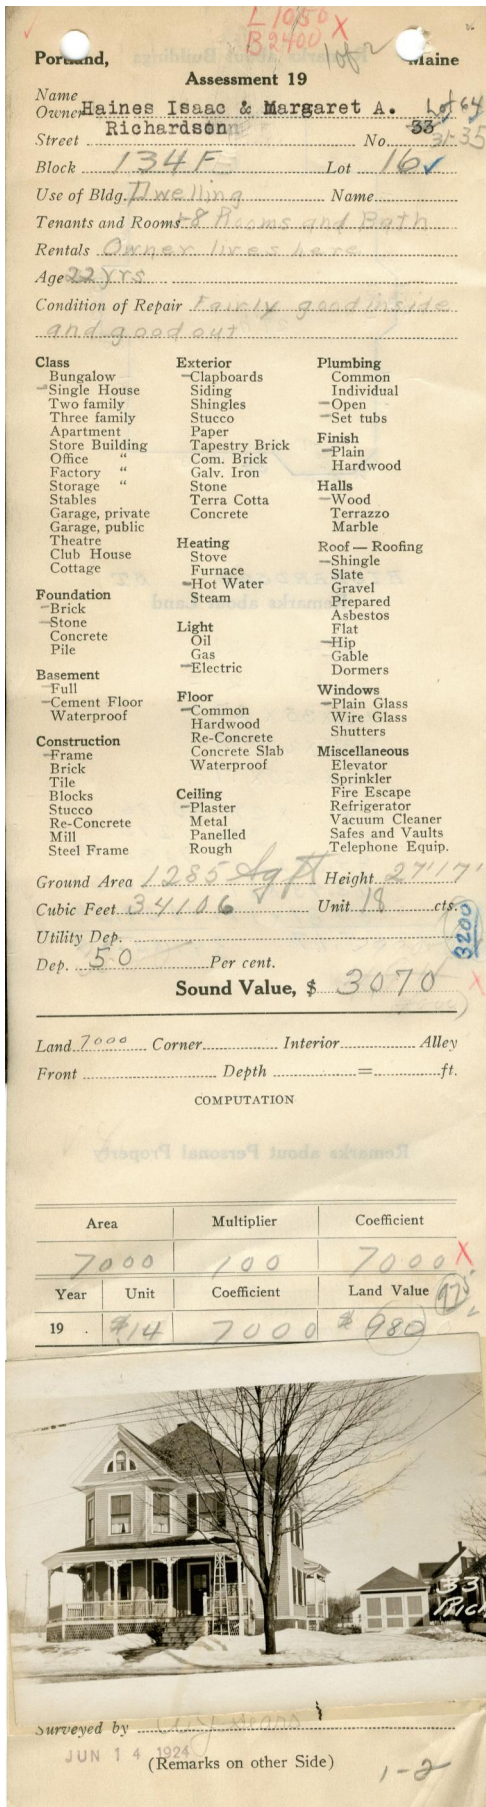 L 1050 X
B 2400
1 of 2
Portland, Maine
Assessment 19
Name
Owner Haines Isaac & Margaret A. Lot 64
Street Richardson No. 33 31-35
Block 134F Lot 16 ✓
Use of Bldg. Dwelling Name
Tenants and Rooms 8 Rooms and Bath
Rentals Owner lives here
Age 22 yrs
Condition of Repair Fairly good inside
and good out
Class
Bungalow
- Single House
Two family
Three family
Apartment
Store Building
Office "
Factory "
Storage "
Stables
Garage, private
Garage, public
Theatre
Club House
Cottage
Foundation
- Brick
- Stone
Concrete
Pile
Basement
- Full
- Cement Floor
Waterproof
Construction
- Frame
Brick
Tile
Blocks
Stucco
Re-Concrete
Mill
Steel Frame
Exterior
- Clapboards
Siding
Shingles
Stucco
Paper
Tapestry Brick
Com. Brick
Galv. Iron
Stone
Terra Cotta
Concrete
Heating
Stove
Furnace
- Hot Water
Steam
Light
Oil
Gas
- Electric
Floor
- Common
Hardwood
Re-Concrete
Concrete Slab
Waterproof
Ceiling
- Plaster
Metal
Panelled
Rough
Plumbing
Common
Individual
- Open
- Set tubs
Finish
- Plain
Hardwood
Halls
- Wood
Terrazzo
Marble
Roof — Roofing
- Shingle
Slate
Gravel
Prepared
Asbestos
Flat
- Hip
Gable
Dormers
Windows
- Plain Glass
Wire Glass
Shutters
Miscellaneous
Elevator
Sprinkler
Fire Escape
Refrigerator
Vacuum Cleaner
Safes and Vaults
Telephone Equip.
Ground Area 1285 Sq ft Height 27' 17'
Cubic Feet 34106 Unit 18 cts.
Utility Dep.
3200
Dep. 50 Per cent.
Sound Value, $ 3070 X
Land 7000 Corner Interior Alley
Front Depth = ft.
COMPUTATION
Remarks about Personal Property
Area Multiplier Coefficient
7000 100 7000 X
Year Unit Coefficient Land Value
19 . $14 7000 $980
33
RICH
Surveyed by
JUN 14 1924
(Remarks on other Side)
1-2